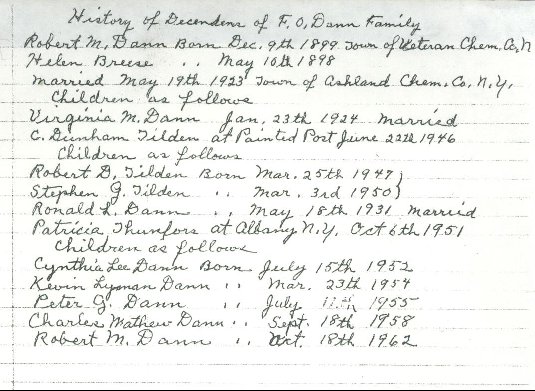 History of Decendens of F. O. Dann Family
Robert M. Dann Born Dec. 9th 1899 Town of Veteran Chem. Co, N
Helen Breese " May 10th 1898
married May 19th 1923 Town of Ashland Chem. Co. N.Y.
Children as follows
Virginia M. Dann Jan. 23th 1924 married
C. Dunham Tilden at Painted Post June 22th 1946
Children as follows
Robert D. Tilden Born Mar. 25th 1947)
Stephen G. Tilden " Mar. 3rd 1950)
Ronald L. Dann " May 18th 1931 married
Patricia Thunfors at Albany N.Y. Oct 6th 1951
Children as follows
Cynthia Lee Dann Born July 15th 1952
Kevin Lyman Dann " Mar. 23th 1954
Peter G. Dann " July 1955
Charles Mathew Dann " Sept. 18th 1958
Robert M. Dann " Oct. 18th 1962